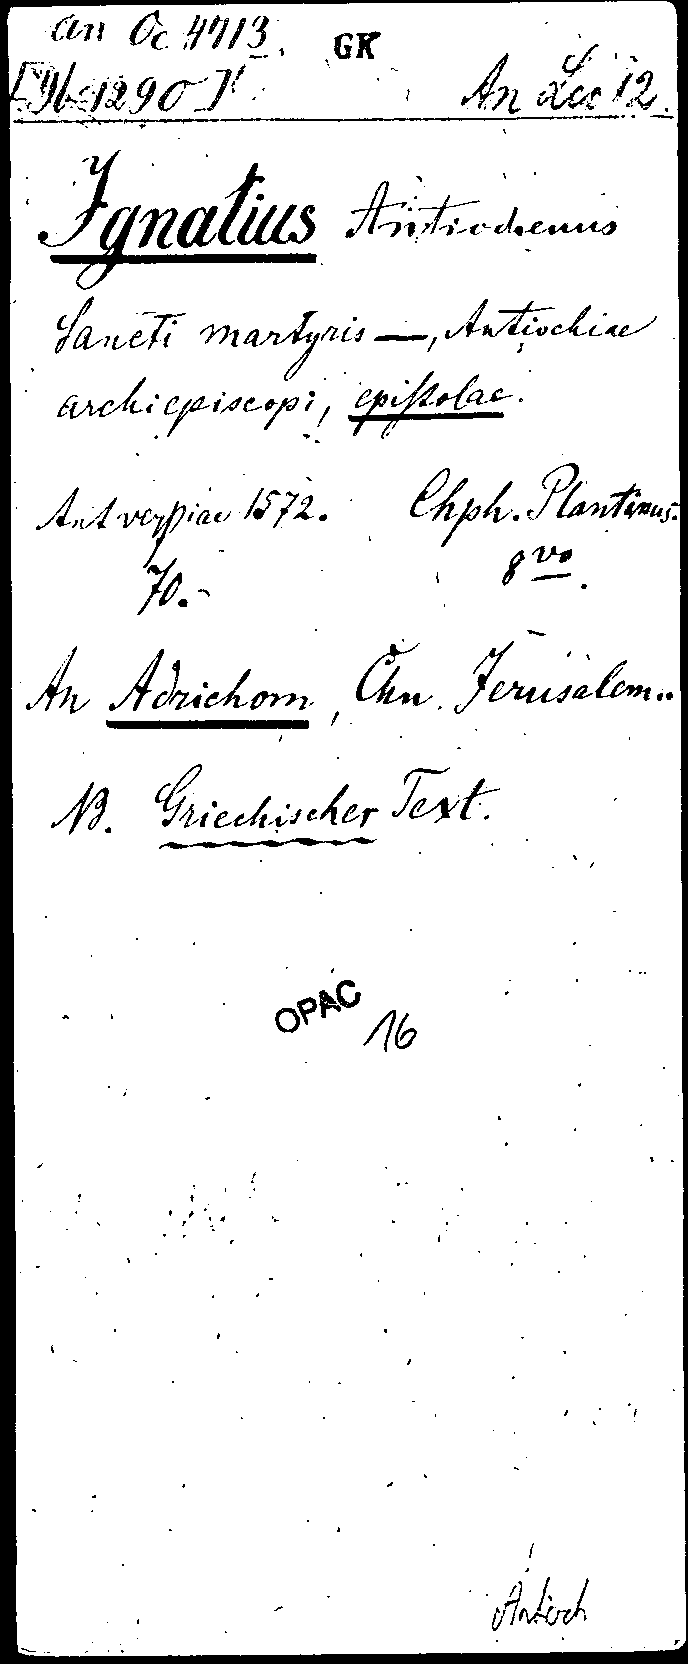 an Oc 4713. GK
[Gb 1290] An Lec 12.
Ignatius Antiochenus
Sancti martyris —, Antiochiae
archiepiscopi, epistolae.
Antverpiae 1572. Chph. Plantinus.
70.- 8vo.
An Adrichom, Chn. Jerusalem..
NB. Griechischer Text.
OPAC
16
Antioch